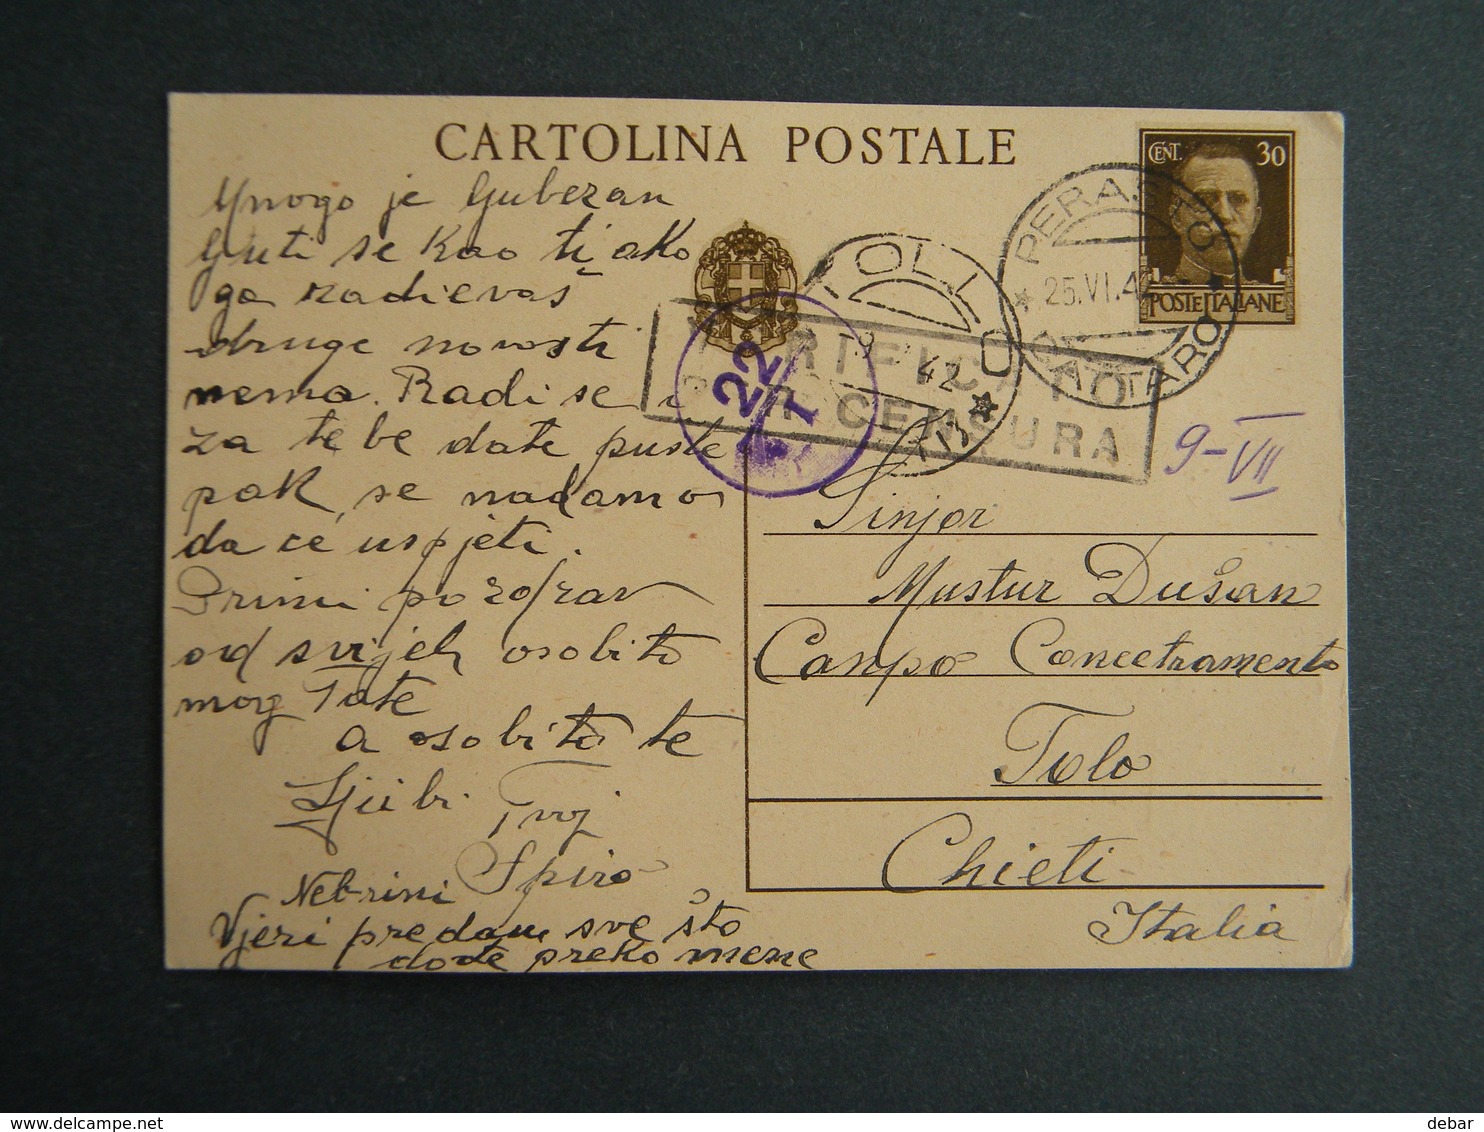 CARTOLINA POSTALE
CENT. 30
POSTE ITALIANE
PERASTO
25.VI.42
CATTARO
TOLLO
42
VERIFICATO
PER CENSURA
22
9-VII
Mnogo je ljubezan
ljuti se kao ti ako
ga razdievaš
druge novosti
nema. Radi se i
za tebe date puste
pak se nadamo
da će uspjeti.
Primi pozdrav
od svijeh osobito
mog Tate
a osobito te
Ljubi Tvoj
Spiro
Nebrini
Vjeri predam sve što
dođe preko mene
Sinjor
Mustur Dušan
Campo Concetramento
Tolo
Chieti
Italia
debar